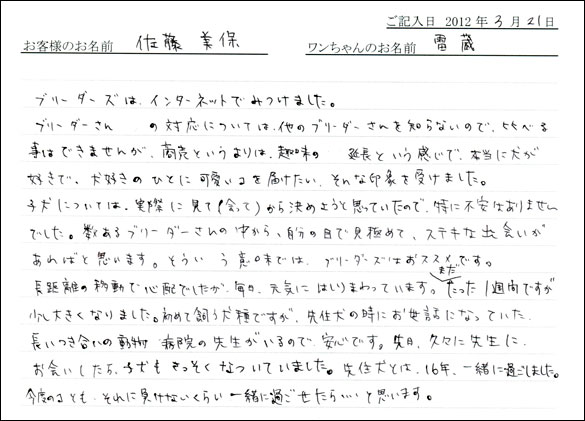 ご記入日 2012年3月21日
お客様のお名前 佐藤 美保 ワンちゃんのお名前 雷蔵
ブリーダーズは、インターネットでみつけました。
ブリーダーさん の対応については、他のブリーダーさんを知らないので、比べる
事はできませんが、商売というよりは、趣味の 延長という感じで、本当に犬が
好きで、犬好きのひとに可愛いコを届けたい、そんな印象を受けました。
子犬については、実際に見て(会って)から決めようと思っていたので、特に不安はありません
でした。数あるブリーダーさんの中から、自分の目で見極めて、ステキな出会いが
あればと思います。そういう意味では、ブリーダーズはおススメです。
長距離の移動で心配でしたが、毎日、元気にはしりまわっています。まだたった1週間ですが
少し大きくなりました。初めて飼う犬種ですが、先住犬の時にお世話になっていた、
長いつき合いの動物 病院の先生がいるので、安心です。先日、久々に先生に
お会いしたら、子犬もさっそくなついていました。先住犬とは、16年、一緒に過ごしました。
今度のコとも、それに負けないくらい一緒に過ごせたらいいと思います。